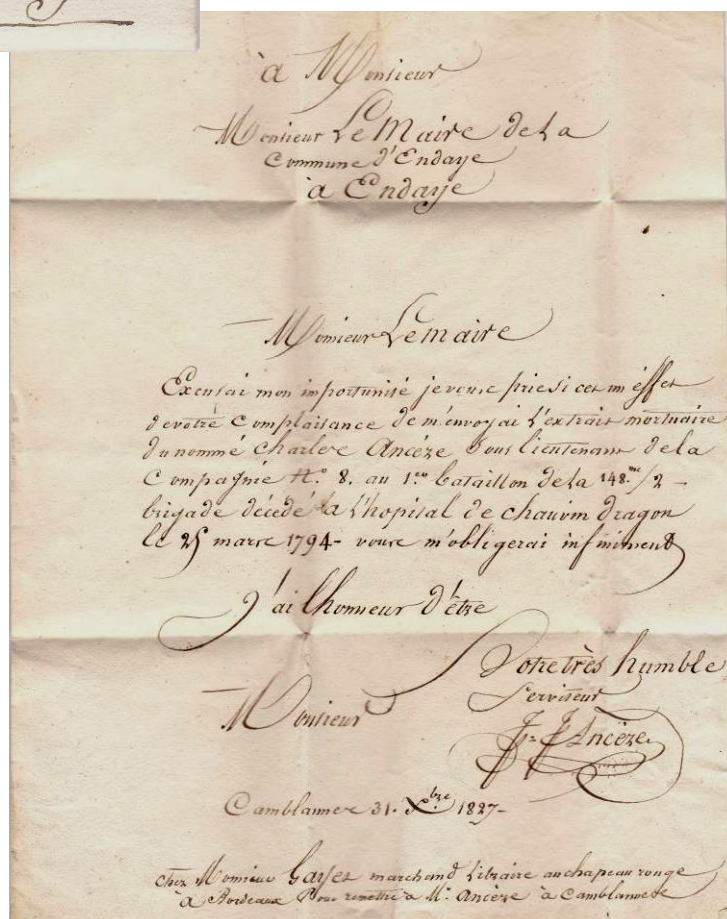 à Monsieur
Monsieur Le Maire de la
Commune d'Endaye
à Endaye
Monsieur Lemaire
Excusai mon importunité je vouse prie si cet un éffet
de votre Complaisance de m'envoyai L'extrait mortuaire
du nommé Charlese Ancèze Sous lieutenant de la
Compagnie N.° 8. au 1.er bataillon de la 148.me/2 -
brigade décédé a L'hopital de chauvin dragon
le 25 marse 1794 - vouse m'obligerai infiniment
J'ai lhonneur D'être
Votre très humble
Serviteur
Monsieur
J.- J. Ancèze
Camblannese 31. Xbre 1827-
chez Monsieur Gayet marchand Libraire au chapeau rouge
à Bordeaux Pour remettre a Mr. Ancèze à Camblannese